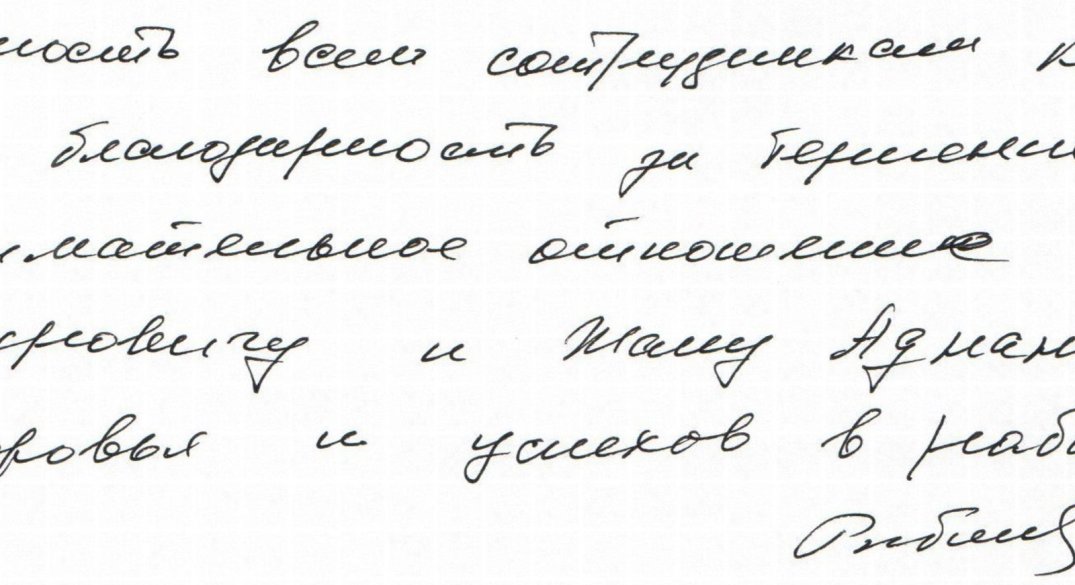 ность всем сотрудникам к
благодарность за терпени
имательное отношение
ровичу и Жану Аднан
ровья и успехов в рабо